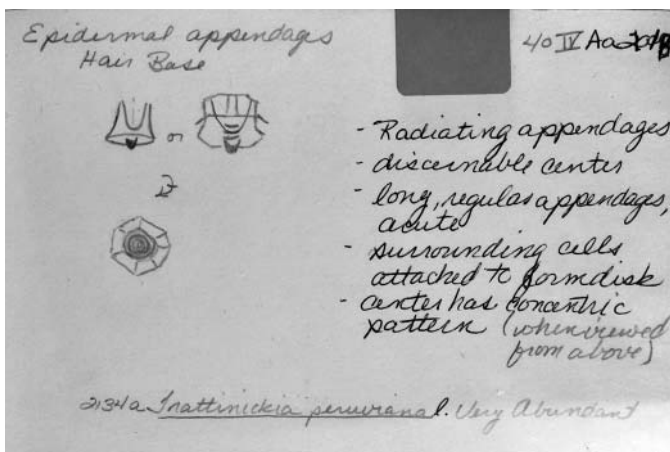 Epidermal appendages
Hair Base
40 IV Aa
or
- Radiating appendages
- discernable center
- long, regular appendages,
acute
- surrounding cells
attached to form disk
- center has concentric
pattern (when viewed
from above)
2134a Trattinickia peruviana l. Very Abundant